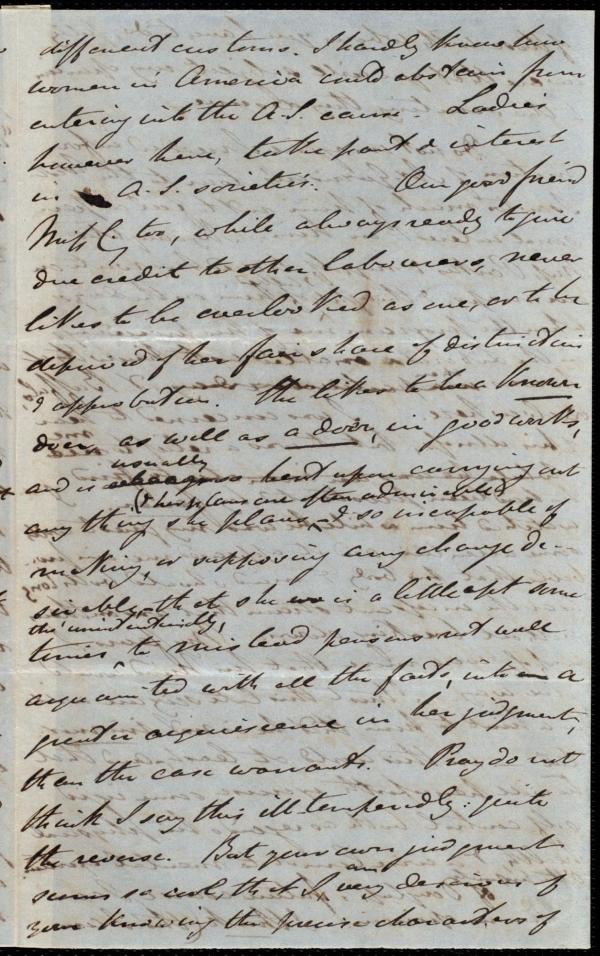 different customs. I hardly know how
women in America could abstain from
entering into the A. S. cause. Ladies
however here, take part & interest
in A. S. societies. Our good friend
Miss C. too, while always ready to give
due credit to other labourers, never
likes to be overlooked as one, or to be
deprived of her fair share of distinction
& approbation. She likes to be a known
doer, as well as a doer, in good works,
usually
and is bent upon carrying out
(& her plans are often admirable)
any thing she plans, & so incapable of
making, or supposing any change de-
sirable, that she is a little apt some
tho' unintentionally,
times to mislead persons not well
acquainted with all the facts, into a
greater acquiescence in her judgment,
than the case warrants. Pray do not
think I say this ill-temperedly: quite
the reverse. But your own judgment
am
seems so cool, that I very desirous of
your knowing the precise characters of